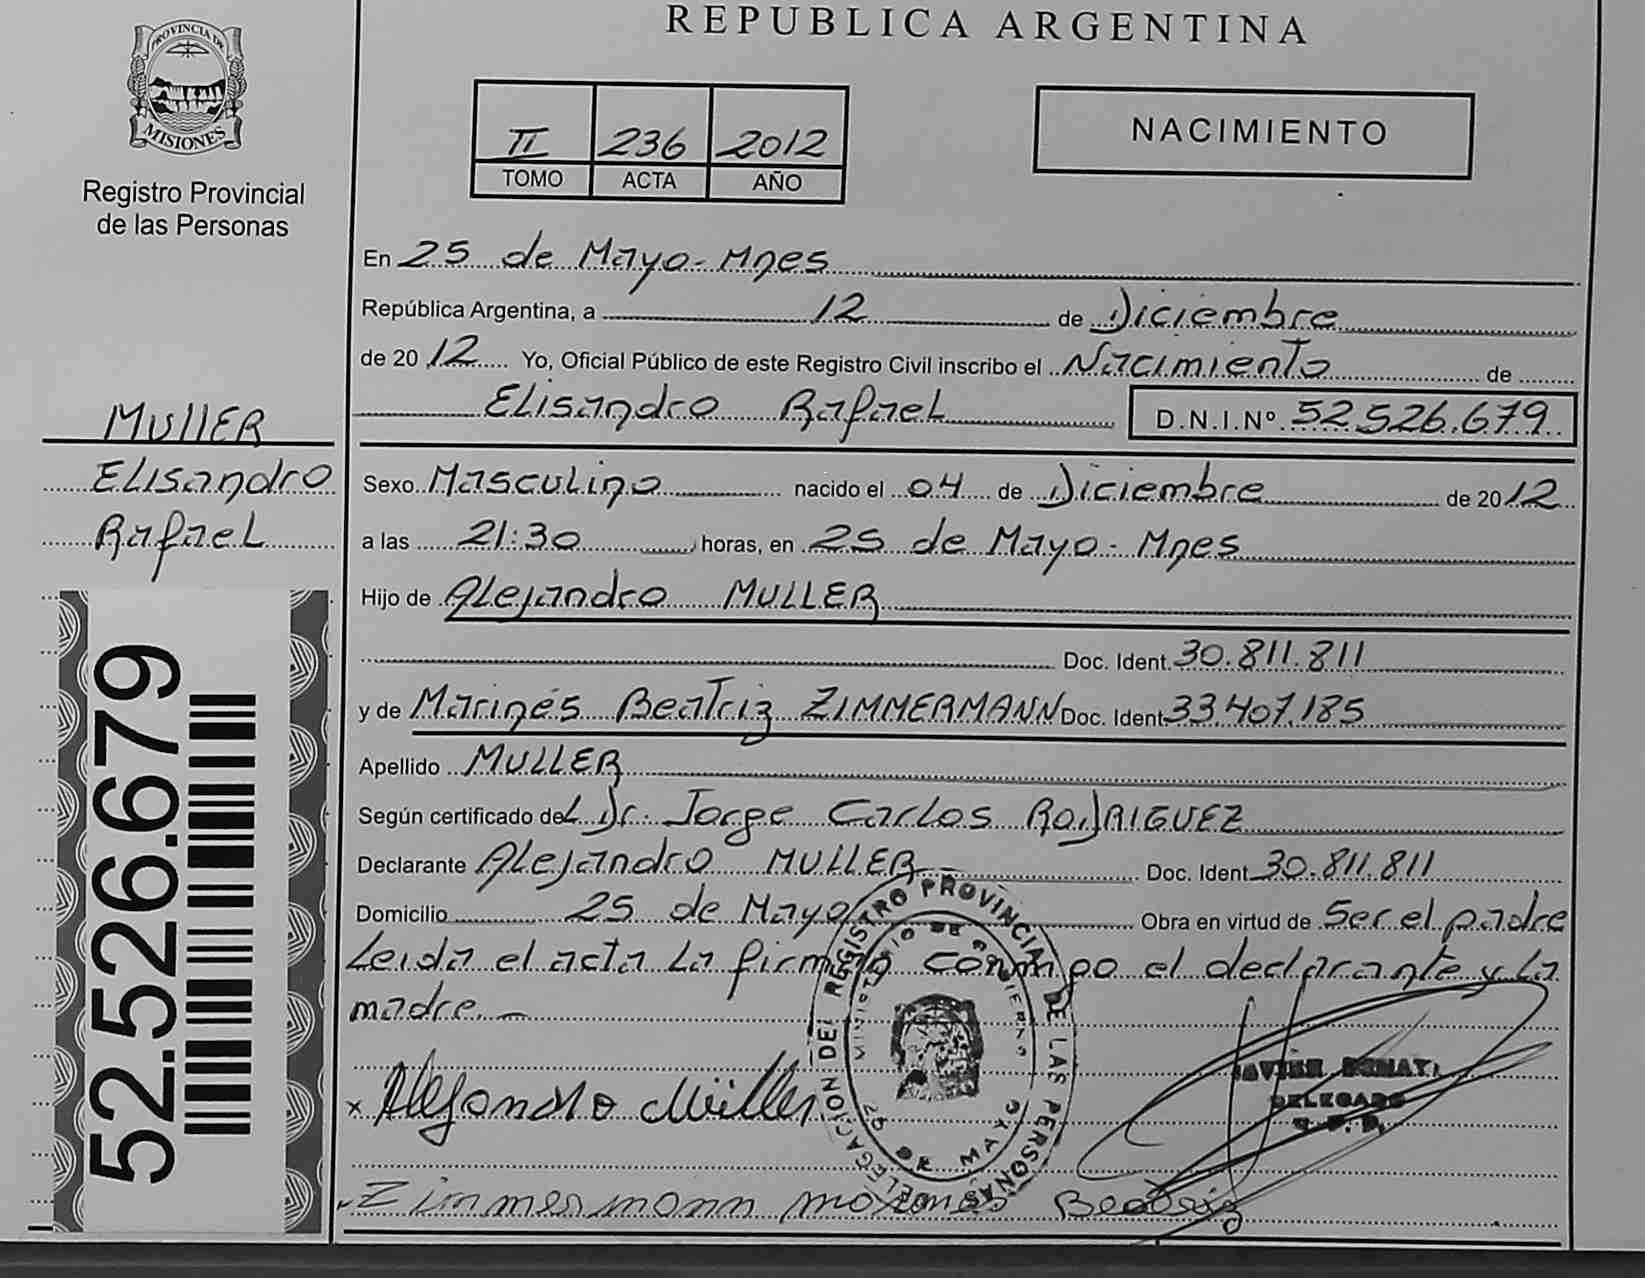 REPUBLICA ARGENTINA
PROVINCIA DE
MISIONES
Registro Provincial
de las Personas
II 236 2012
TOMO ACTA AÑO
NACIMIENTO
En 25 de Mayo-Mnes
República Argentina, a 12 de Diciembre
de 2012 Yo, Oficial Público de este Registro Civil inscribo el Nacimiento de
Elisandro Rafael D.N.I.Nº 52.526.679
MULLER
Elisandro
Rafael
Sexo Masculino nacido el 04 de Diciembre de 2012
a las 21:30 horas, en 25 de Mayo-Mnes
Hijo de Alejandro MULLER
Doc. Ident. 30.811.811
y de Marinés Beatriz ZIMMERMANN Doc. Ident. 33407.185
Apellido MULLER
Según certificado del Dr. Jorge Carlos RODRIGUEZ
Declarante Alejandro MULLER Doc. Ident. 30.811.811
Domicilio 25 de Mayo Obra en virtud de Ser el padre
Leida el acta la firman conmigo el declarante y la
madre.
52.526.679
x Alejandro Müller
DELEGACION DEL REGISTRO PROVINCIAL DE LAS PERSONAS
MINISTERIO DE GOBIERNO
25 DE MAYO
DELEGADO
Zimmermann Marines Beatriz